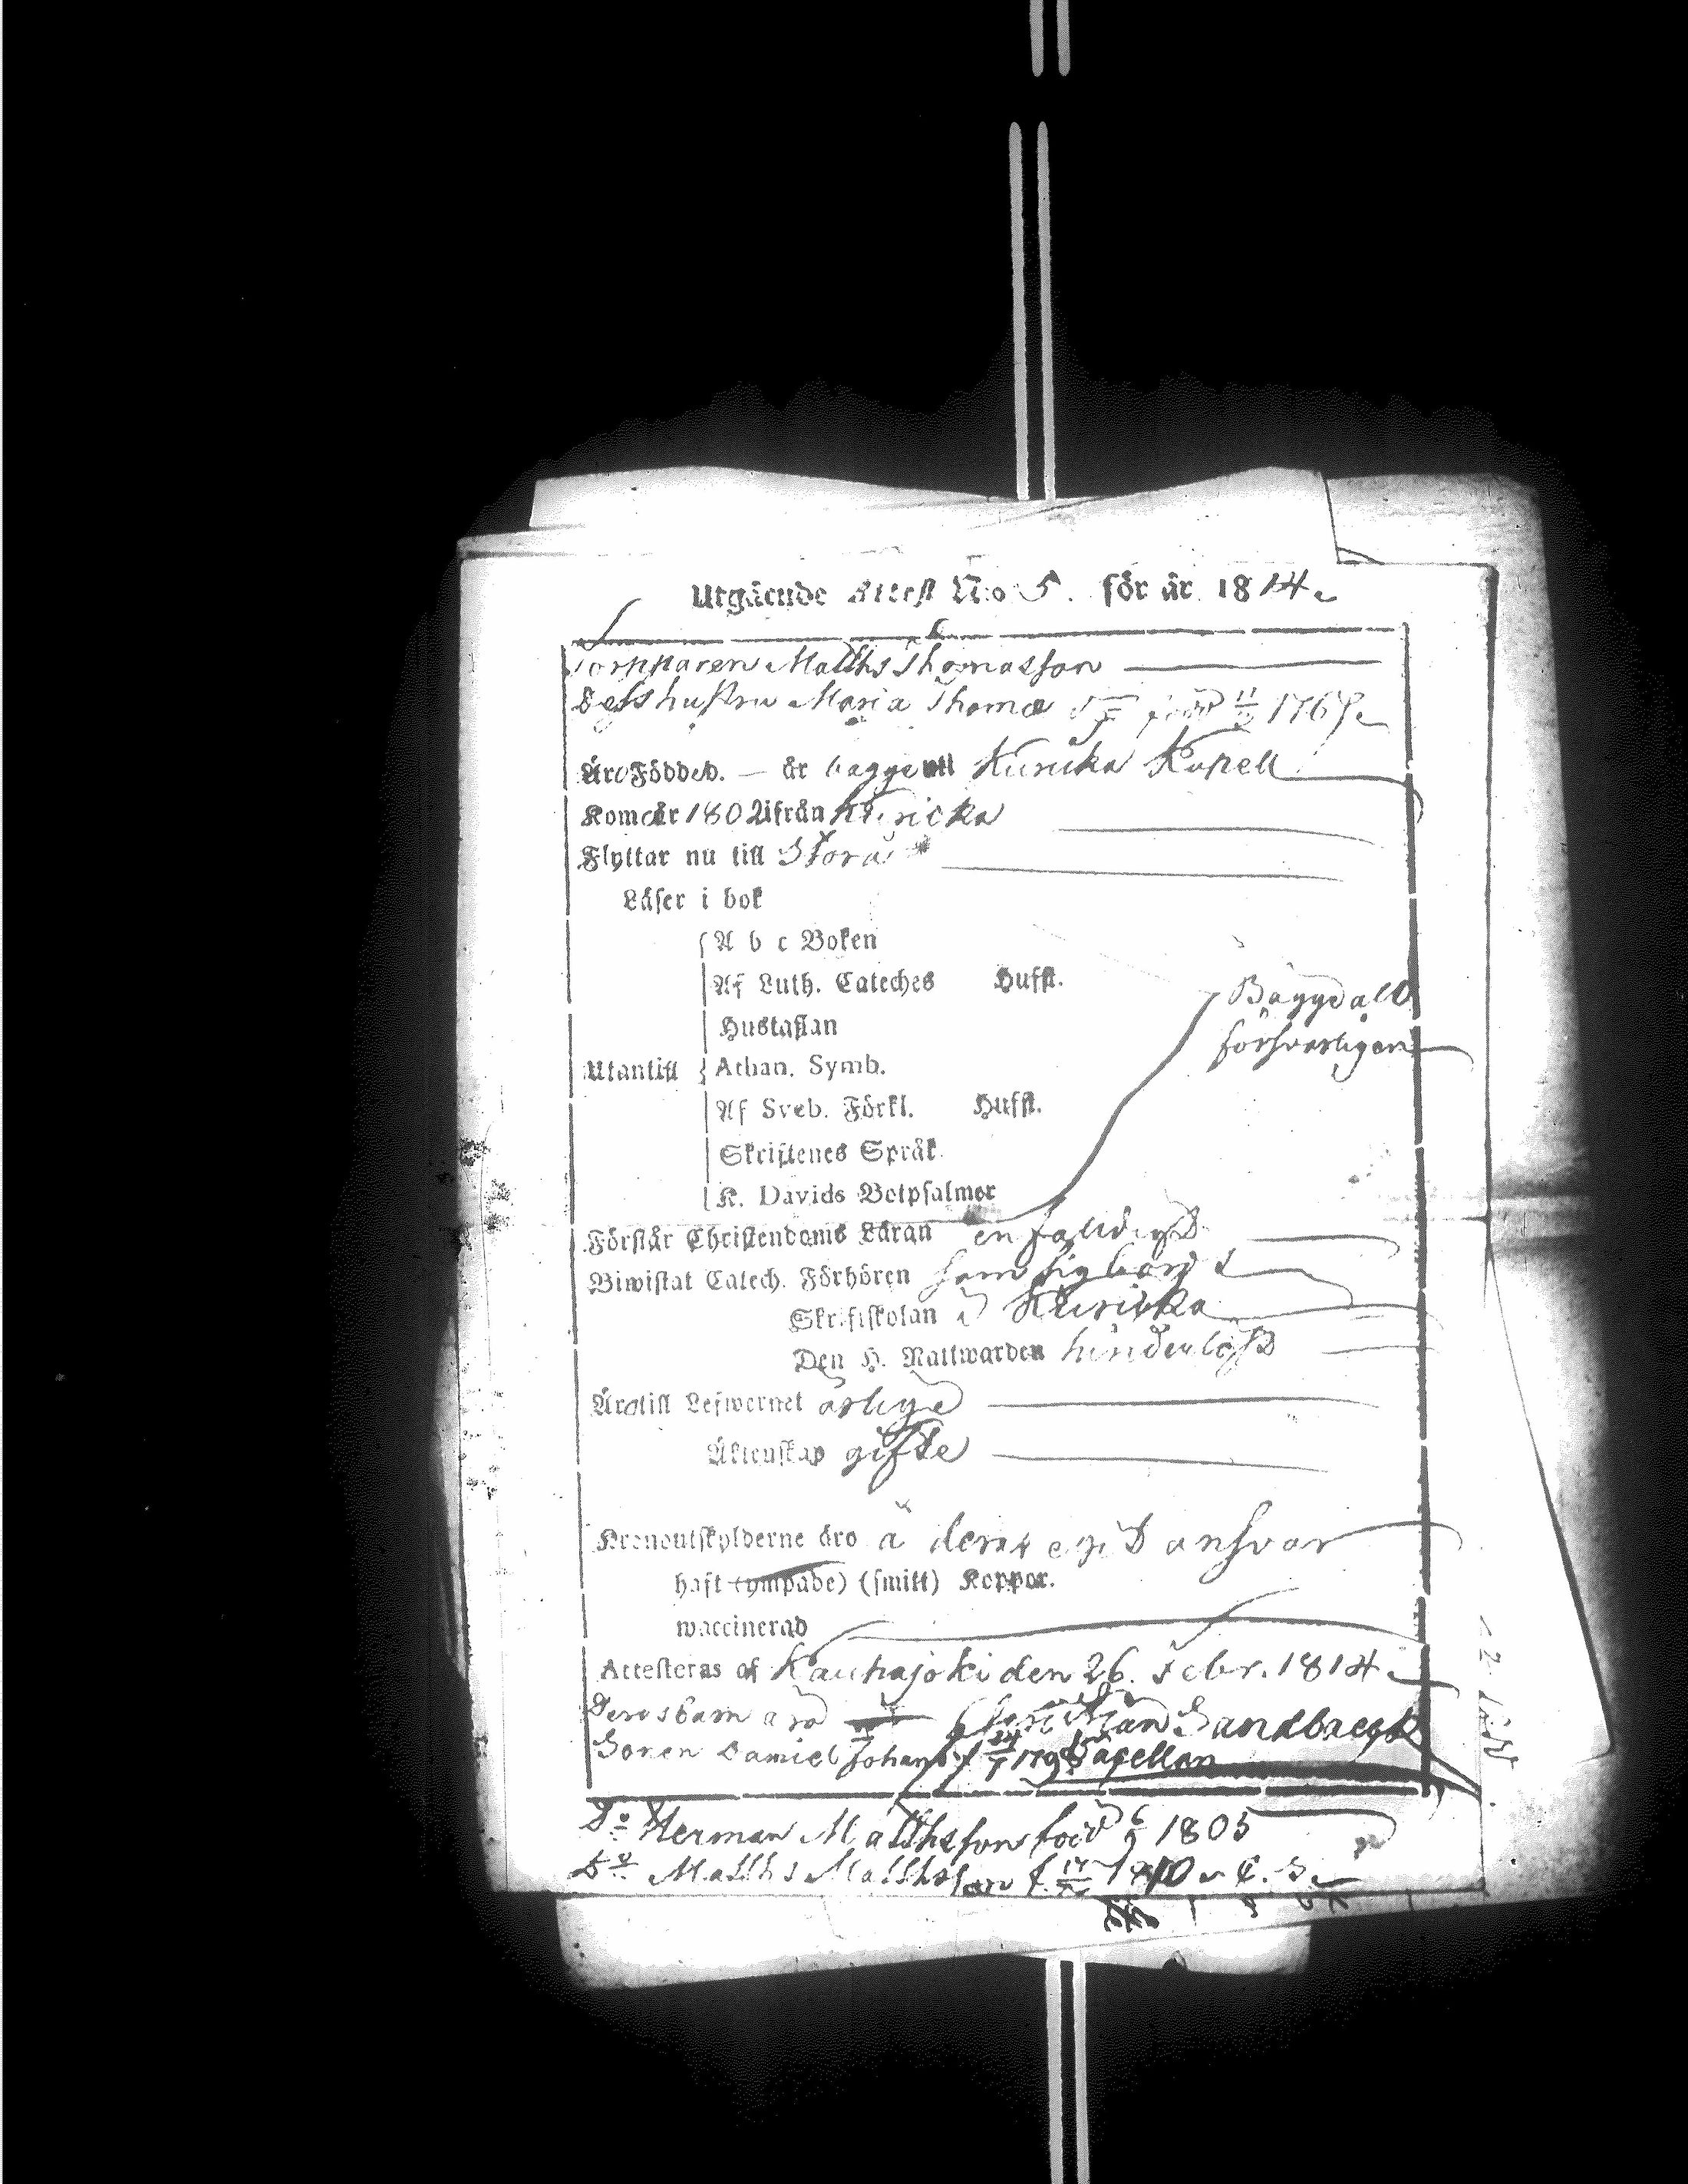 Utgående Attest No 5. för år 1814
Torpparen Matths Thomasson
Dess hustru Maria Thomæ född 11/ 176
Äro Födde. — är bägge uti Kuricka Kapell
Kom år 1802 ifrån Kuricka
Flyttar nu till Storå
Läser i bok
A b c Boken
Af Luth. Cateches Hufst.
Bägge allt
Hustaflan
försvarligen
Utantill Athan. Symb.
Af Sveb. Förkl. Hufst.
Skriftenes Språk
K. Davids Botpsalmer
Förstår Christendoms Läran enfaldigt
Biwistat Catech. Förhören som sig bordt
Skriftskolan i Kuricka
Den H. Nattwarden hinderlöst
Äro till Lefwernet ärlige
Äktenskap gifte
Kronoutskylderne äro å deras eget answar
haft (ympade) (smitt) Koppor.
waccinerad
Attesteras af Kauhajoki den 26. Febr. 1814
Deras barn äro Christian Sandbaeck
Sonen Daniel Johan f. 179 Capellan
Do Herman Matthsson född 6/9 1805
Do Matths Matthsson f. 1810 C. S.